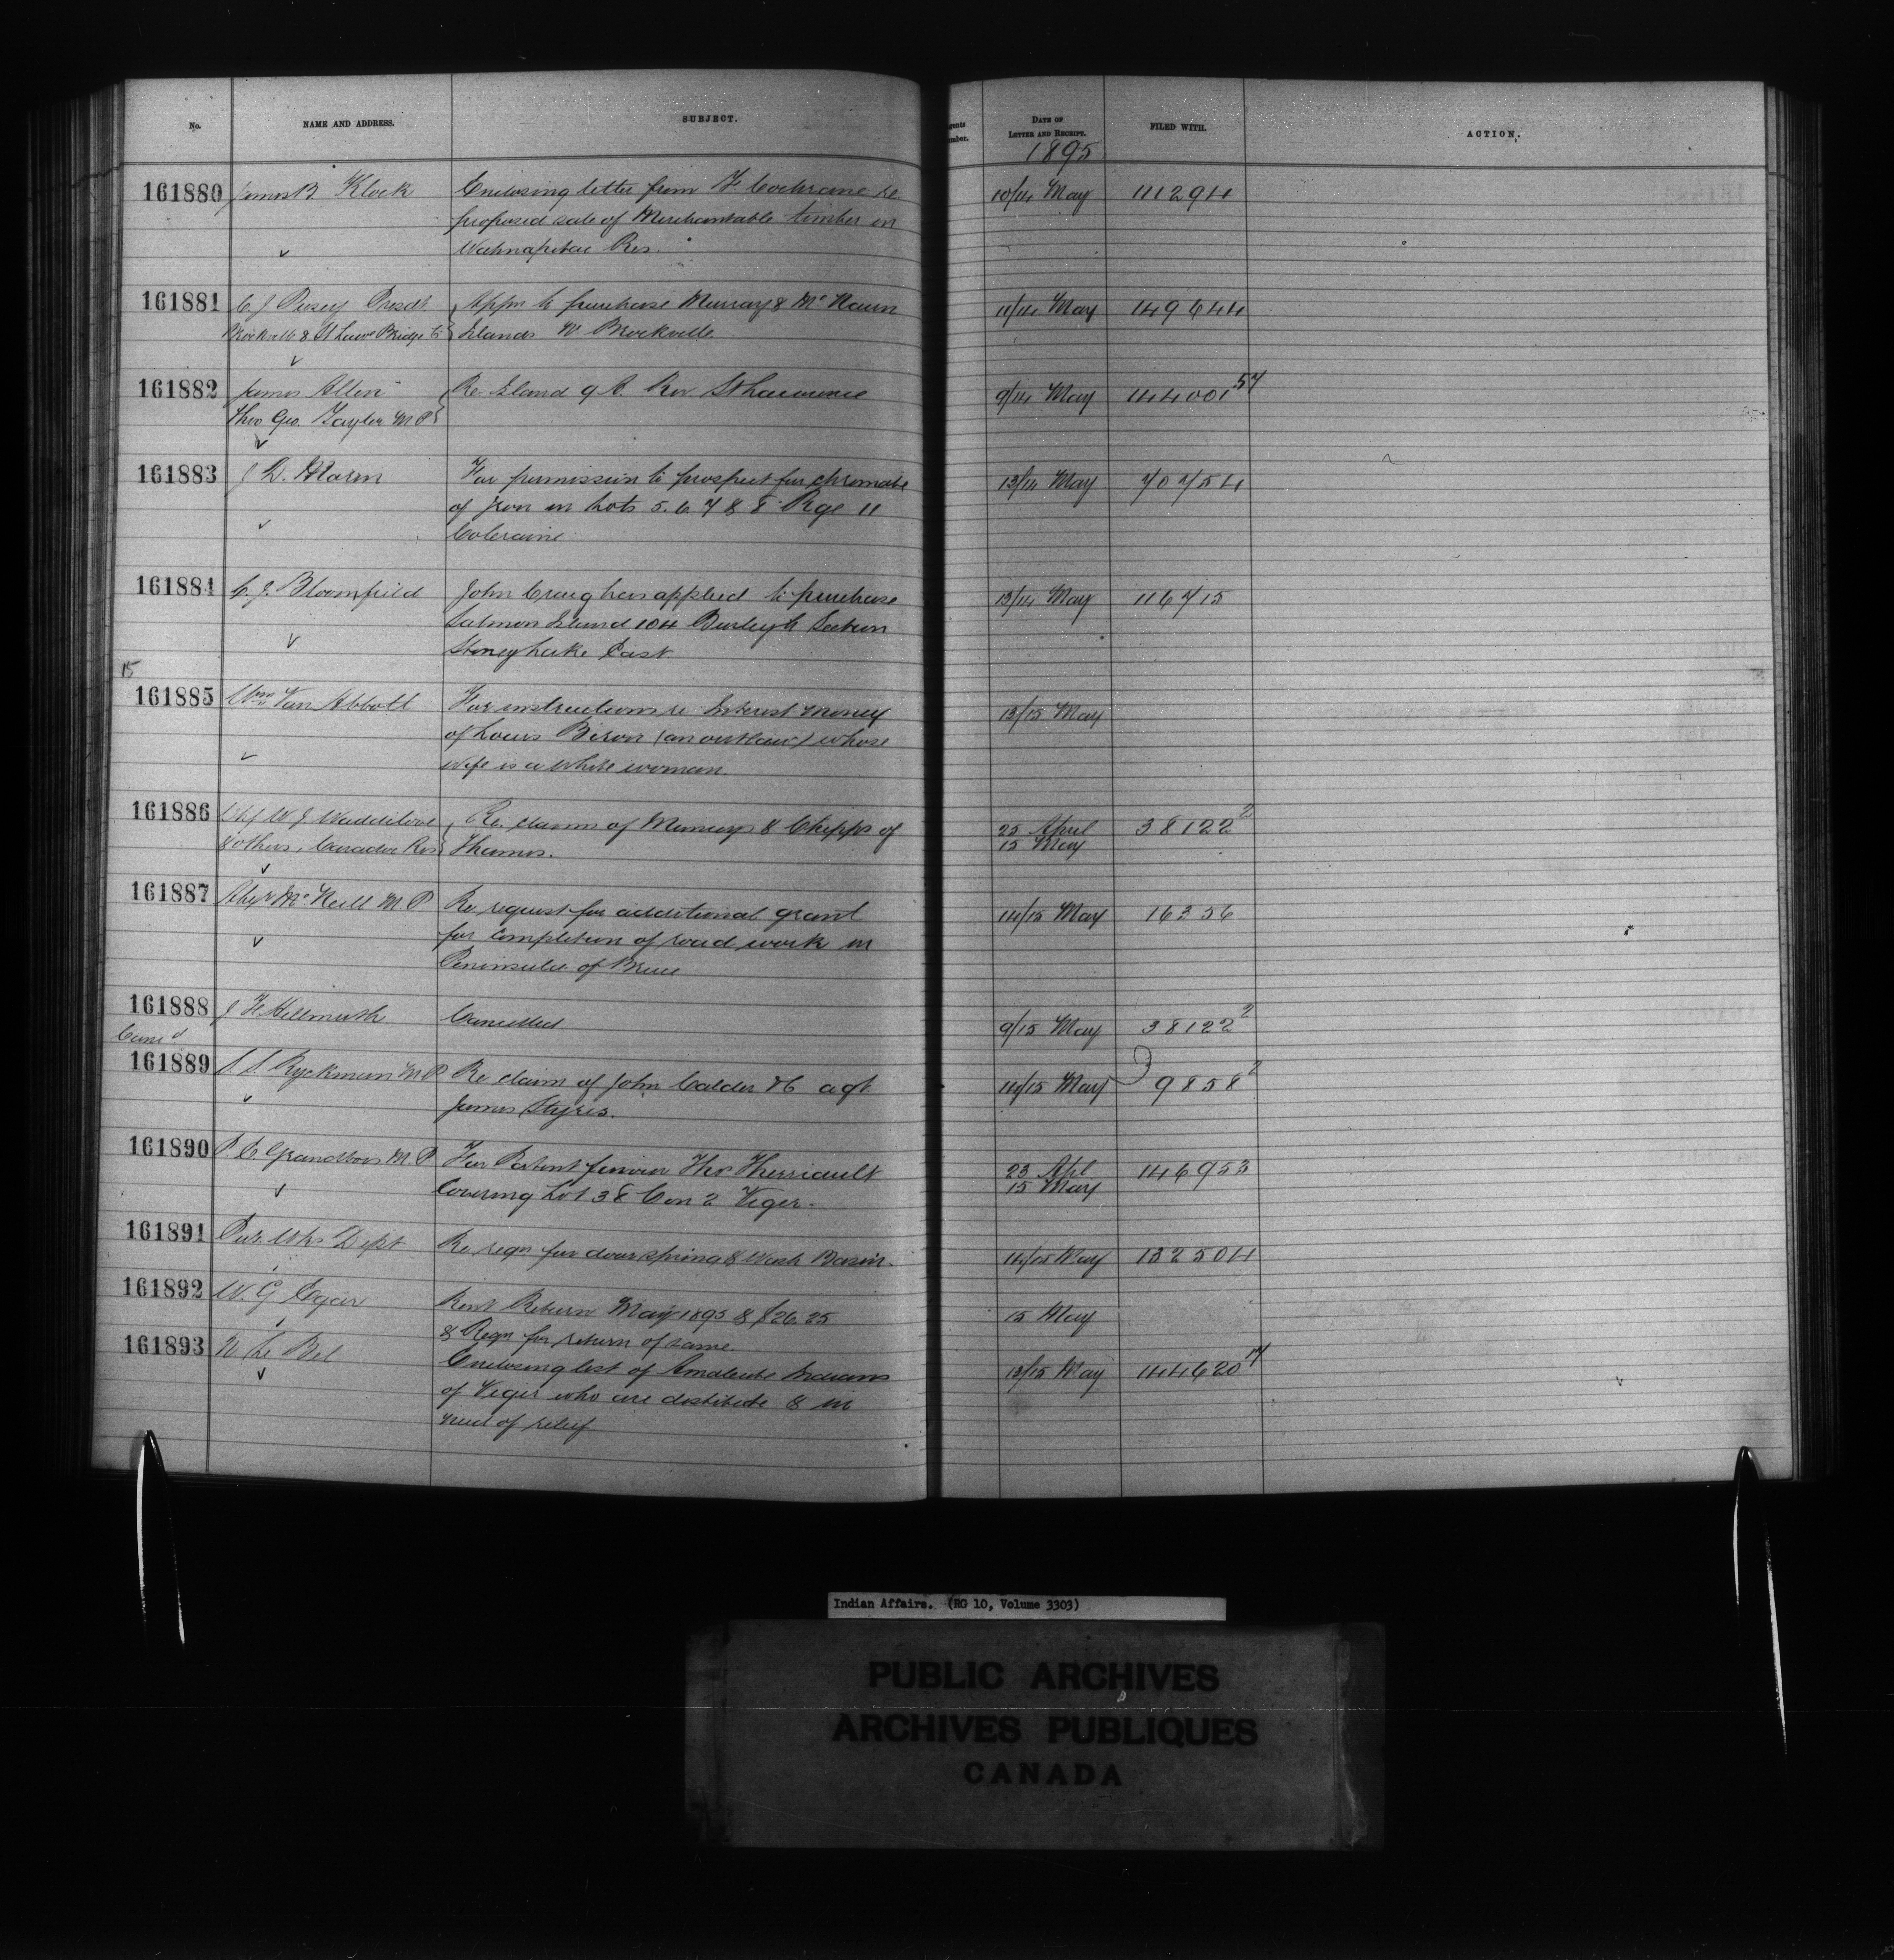 No. NAME AND ADDRESS. SUBJECT. DATE OF LETTER AND RECEIPT. FILED WITH. ACTION.
1895
161880 James B. Klock Enclosing letter from F. Cochrane re. 10/14 May 111294
proposed sale of Merchantable timber on
Wahnapitae Res.
161881 C J Pusey Presdt. Appn to purchase Murray & McNaun 11/14 May 149644
Brockville & St Lawr Bridge Co Islands W. Brockville.
161882 James Allen Re. Island 9 A. Riv St Lawrence 9/14 May 144001 57
thro Geo. Taylor M P
161883 J D. For permission to prospect for chromate 13/14 May 70754
of Iron in Lots 5. 6. 7 & 8 Rge 11
Coleraine
161884 C. J. Bloomfield John Craig has applied to purchase 13/14 May 116715
Salmon Island 104 Burleigh Section
Stoney Lake East.
15
161885 Wm Van Abbott For instructions re Interest money 13/15 May
of Louis Biron (an outlaw) whose
wife is a white woman.
161886 Chf W. J. Waddilove Re. claims of Munceys & Chipps of 25 April 38122 2
& others, Caradoc Res Thames. 15 May
161887 Alexr McNeill M P Re request for additional grant 14/15 May 16356
for completion of road work in
Peninsula of Bruce
161888 J F Hellmuth Cancelled 9/15 May 38122 2
Canc'd
161889 S. S. Ryckman M P Re claim of John Calder & Co agt. 14/15 May 9858 2
James Styres.
161890 P. C. Grandbois M. P For Patent favour Ths Therriault 23 Apl 146953
Covering Lot 38 Con 2 Viger. 15 May
161891 Pub. Wks Dept Re reqn for door spring & Wash Basin. 14/15 May 132504
161892 W. G Egar Rent Return May 1895 & $26.25 15 May
& Reqn for return of same.
161893 N Le Bel Enclosing list of Amalecite Indians 13/15 May 144620 14
of Viger who are destitute & in
need of relief
Indian Affairs. (RG 10, Volume 3303)
PUBLIC ARCHIVES
ARCHIVES PUBLIQUES
CANADA